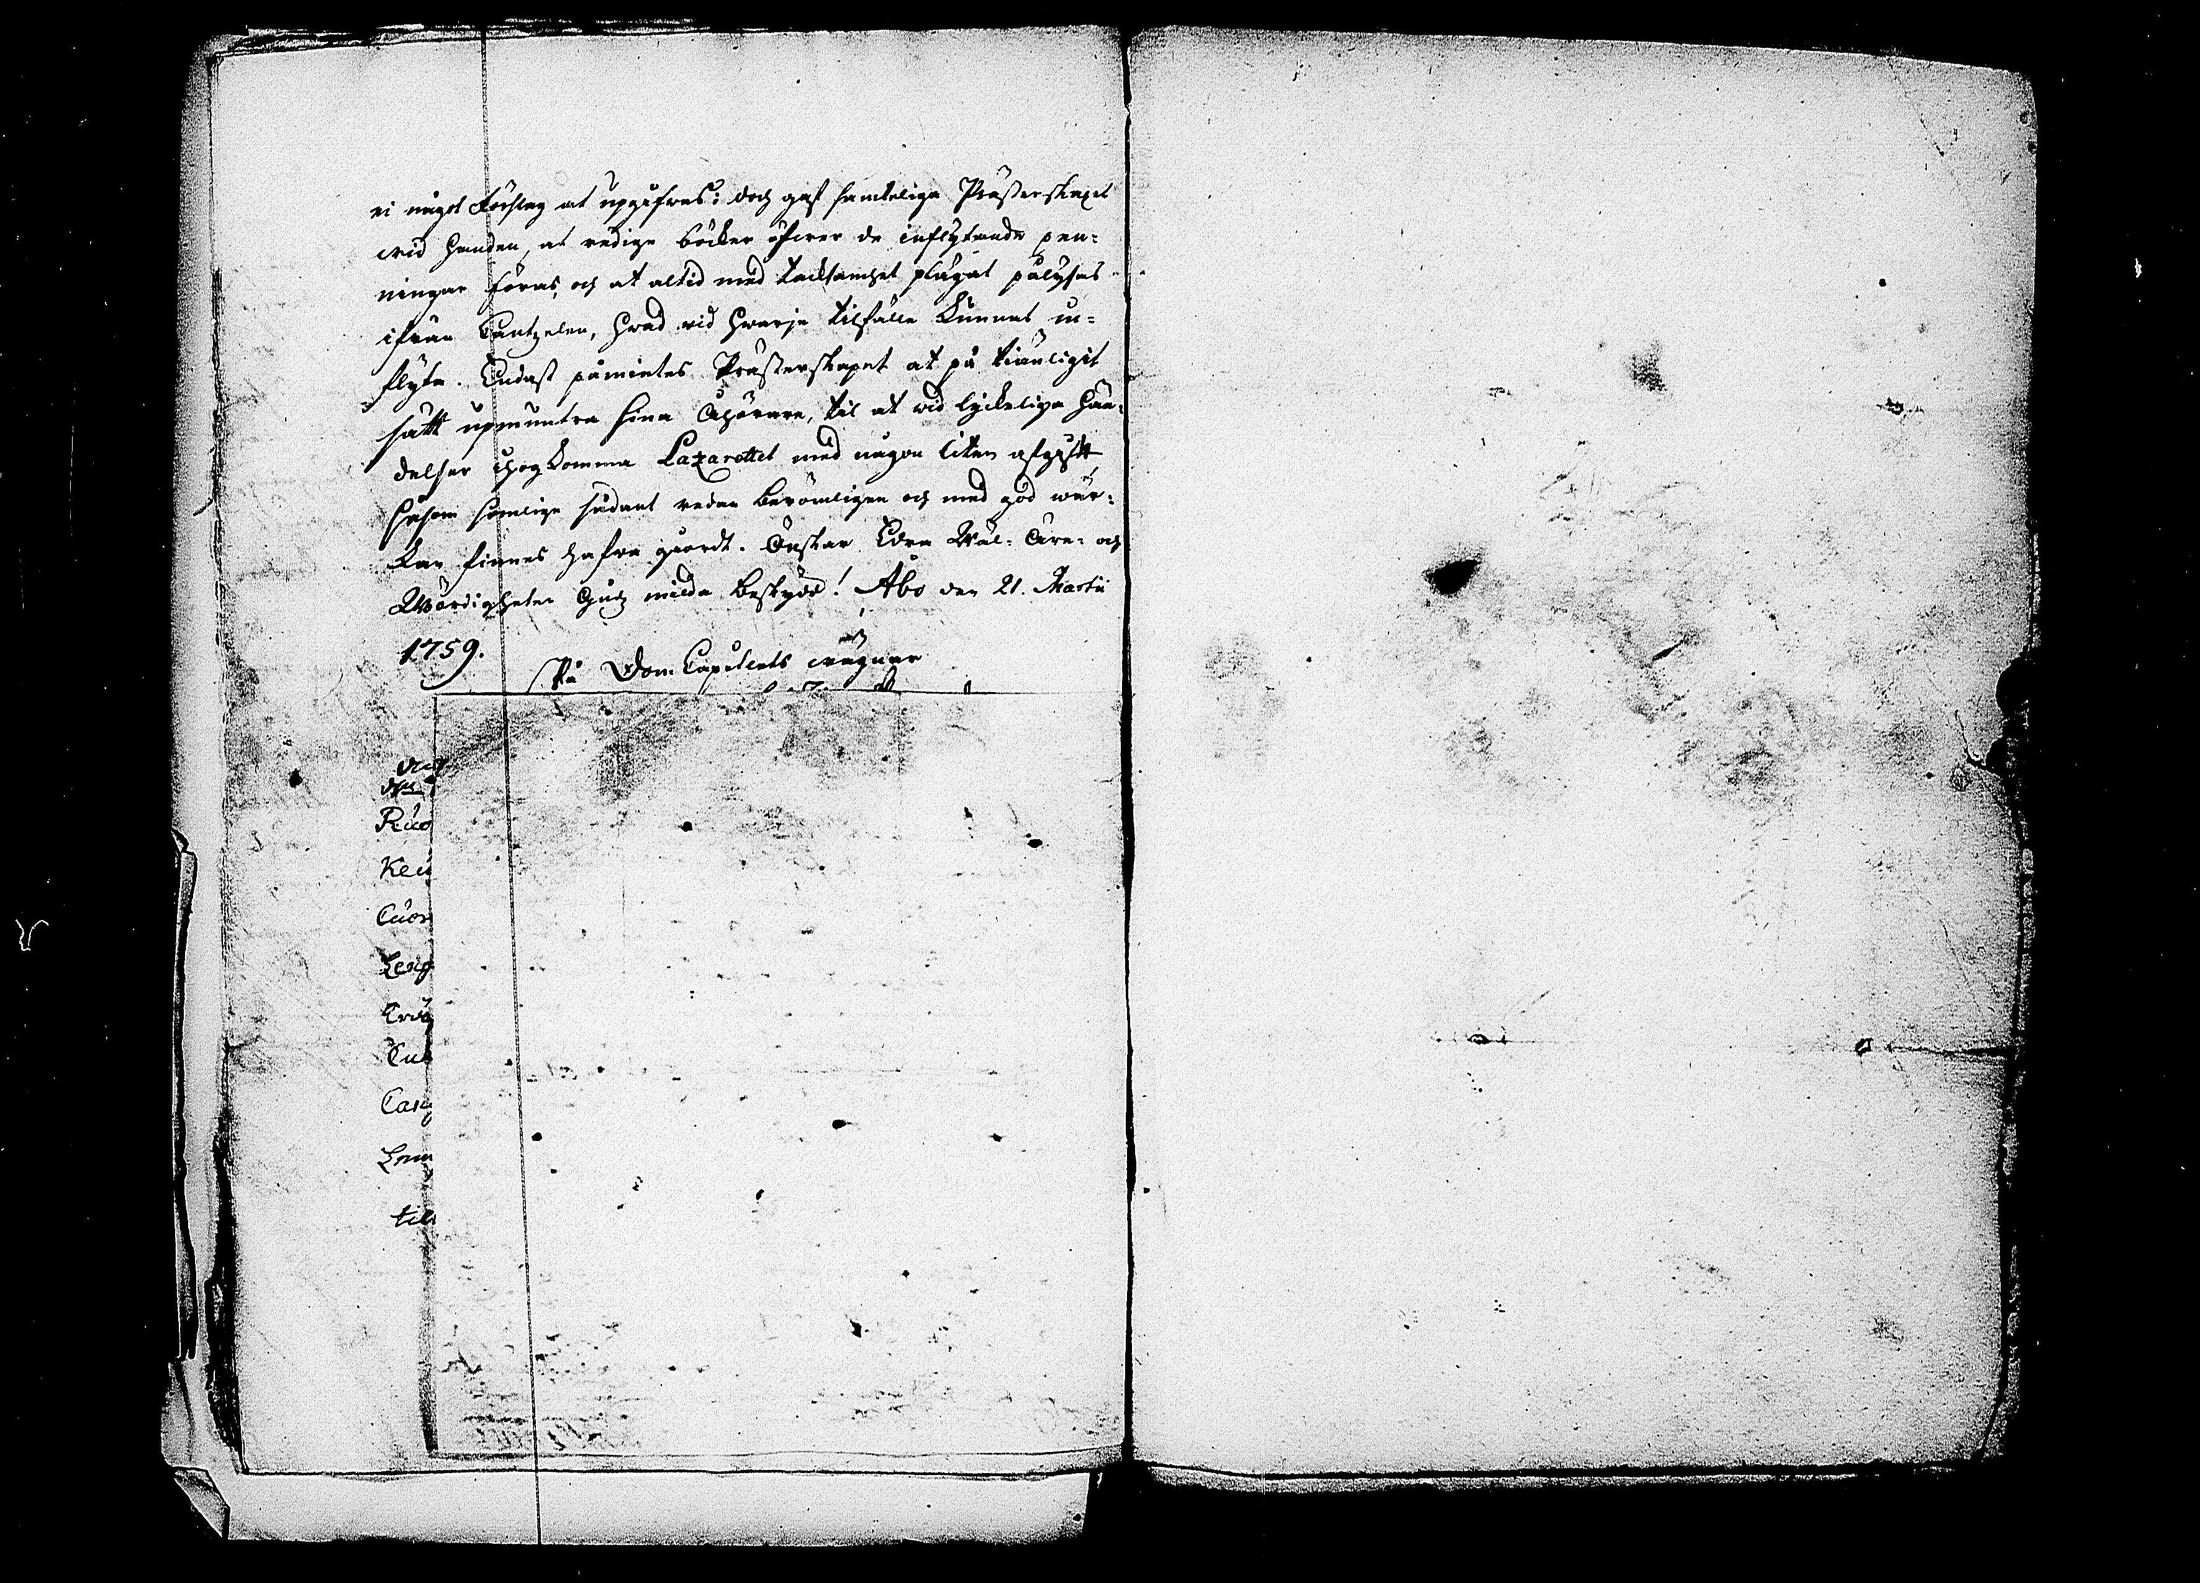 ei något förslag at upgifwas: doch gaf samteliga Prästerskapet
wid handen, at redige böcker öfwer de inflytande pen-
ningar föras, och at altid med tacksamhet plägat pålysas
ifrån Cantzelen, hwad wid hwarje tilfälle kunnat in-
flyta. Endast påmintes Prästerskapet at på tienligit
sätt upmuntra sina Åhörare, til at wid lyckeliga hän-
delser ihogkomma Lazarettet med någon liten afgift
såsom somlige sådant redan berömligen och med god wär-
kan finnes hafwa giordt. Önskar Edra Wäl- Äre- och
Wördigheter Guds milda beskydd! Åbo den 21. Martii
1759.
På Dom-Capitlets wägnar
Ruo
Keu
Cuor
Leng
Cas
til